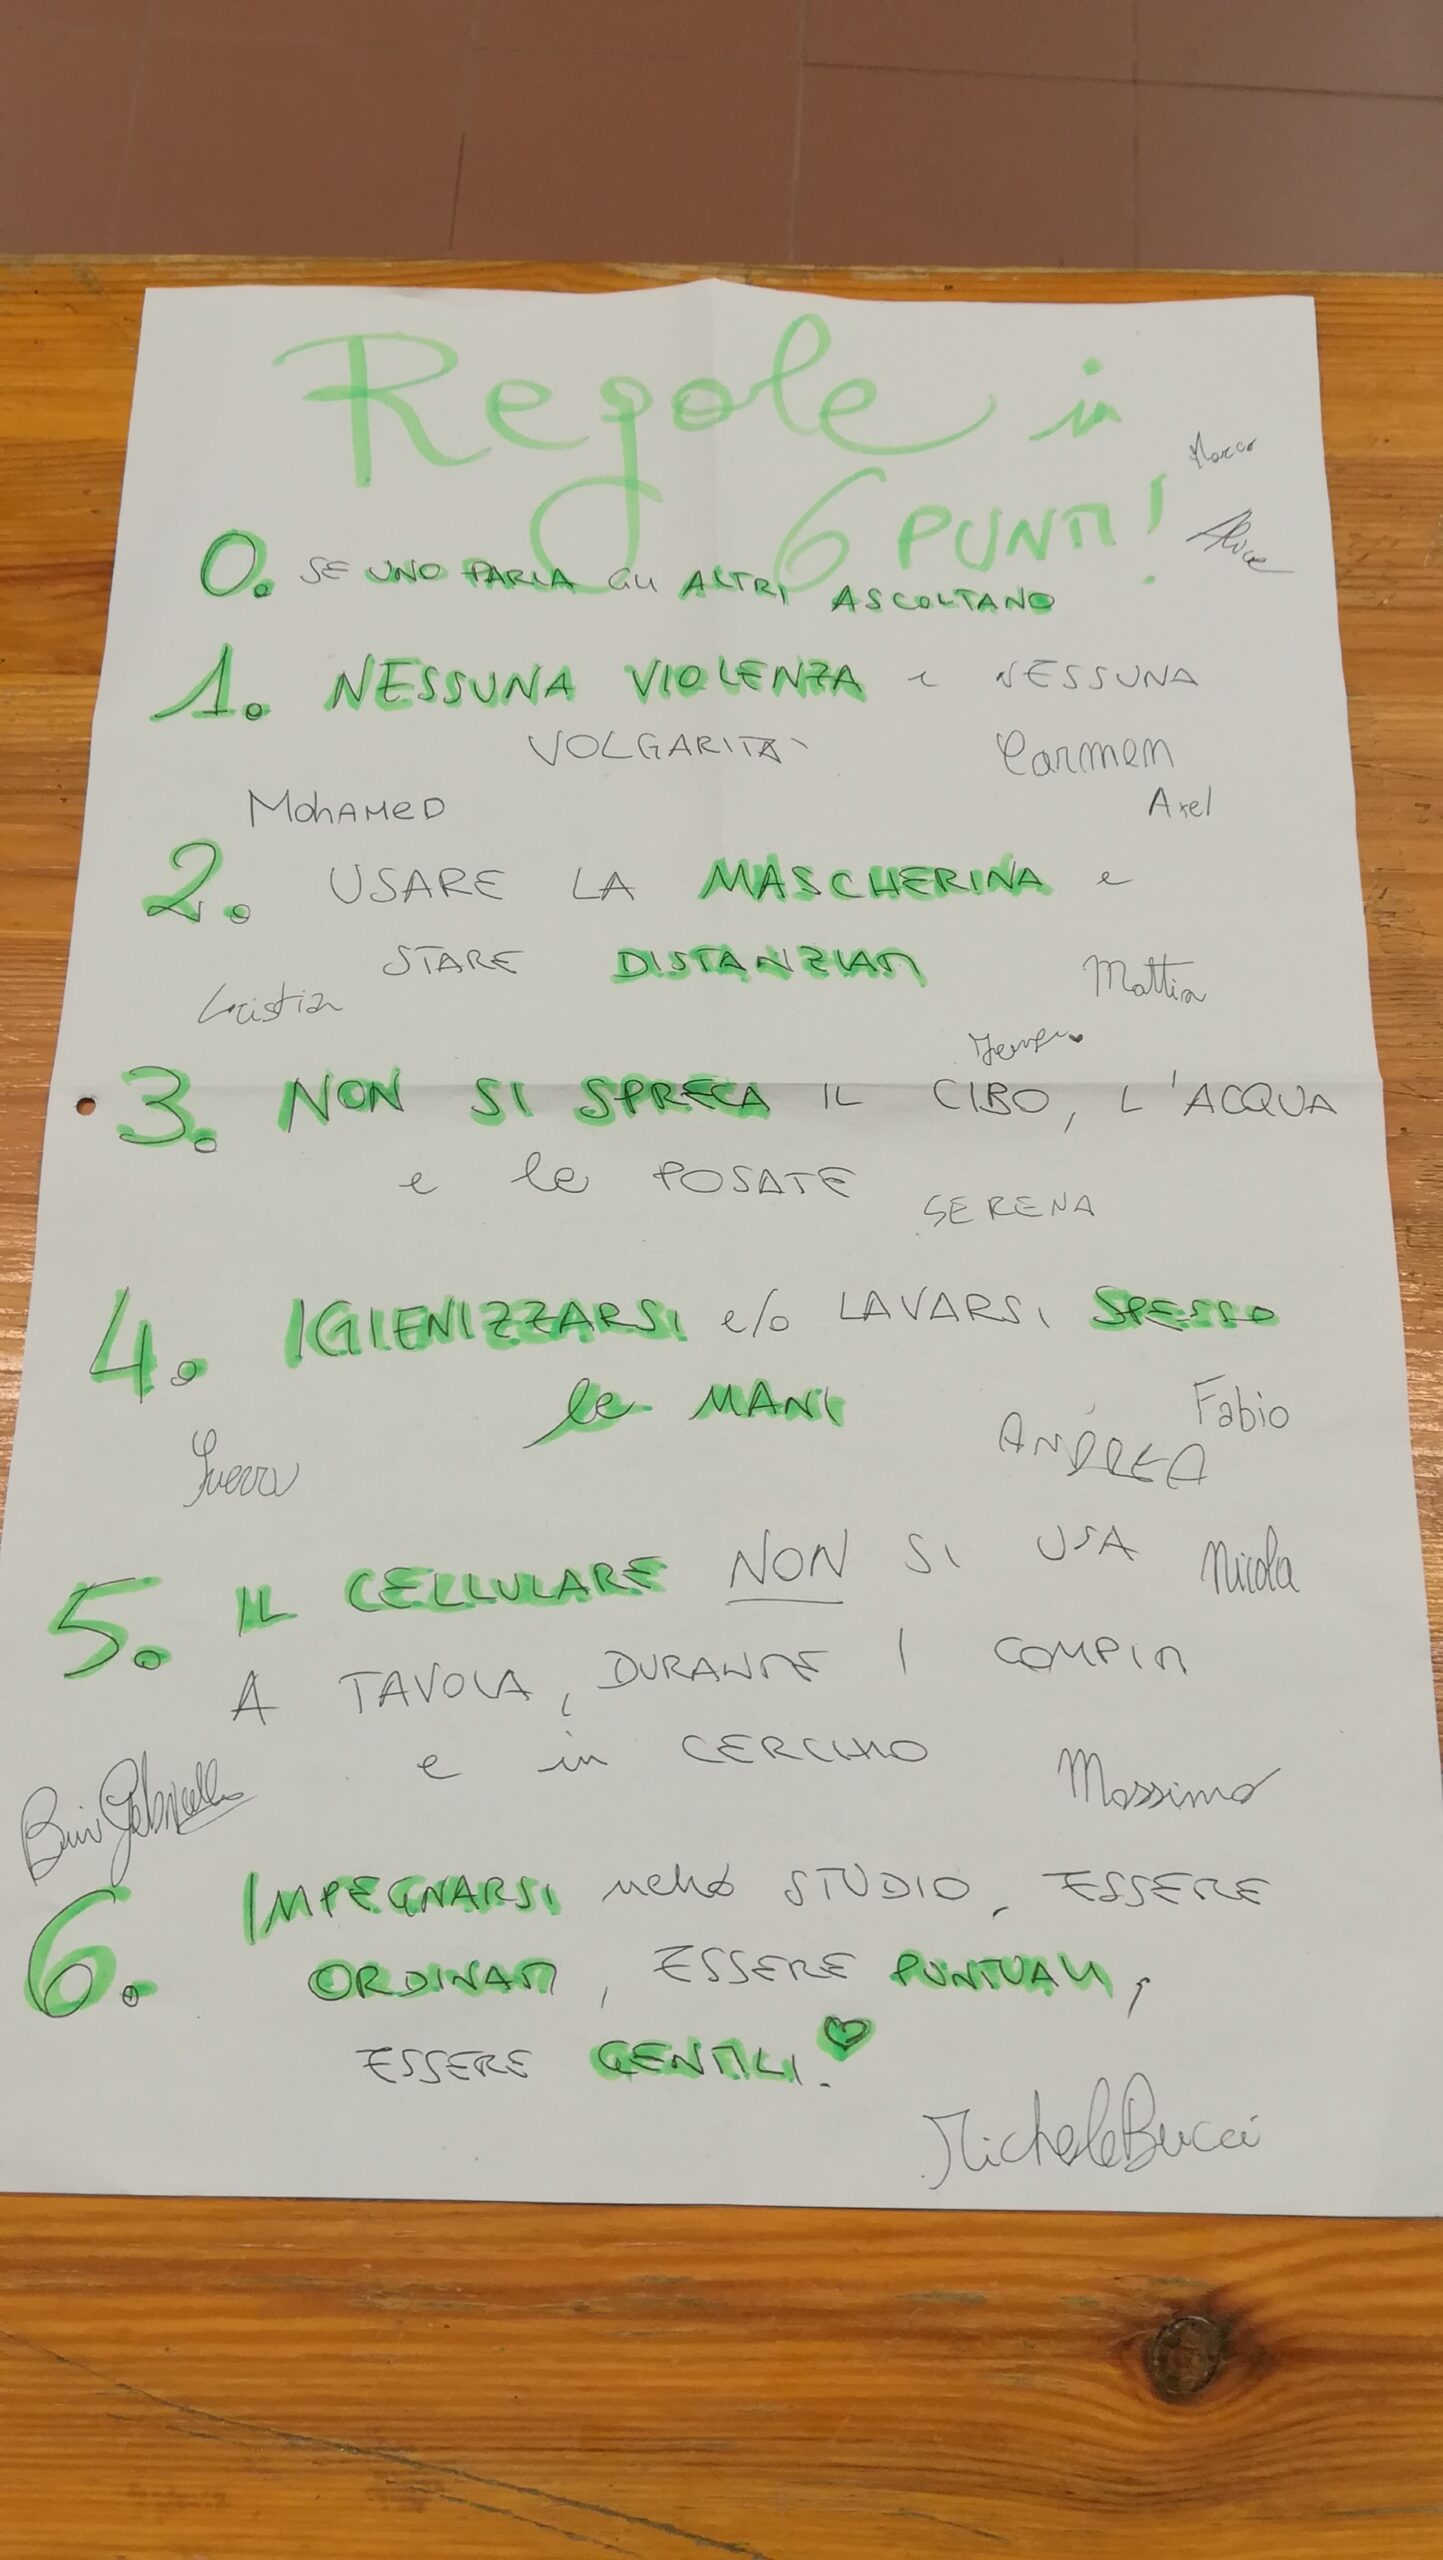 Regole in
Marco
6 PUNTI!
Alice
0. SE UNO PARLA GLI ALTRI ASCOLTANO
1. NESSUNA VIOLENZA e NESSUNA
VOLGARITÀ
Carmen
MOHAMED
Axel
2. USARE LA MASCHERINA e
STARE DISTANZIATI
Mattia
Cristia
3. NON SI SPRECA IL CIBO, L'ACQUA
e le POSATE
SERENA
4. IGIENIZZARSI e/o LAVARSI SPESSO
le MANI
Fabio
ANDREA
5. IL CELLULARE NON SI USA
Nicola
A TAVOLA, DURANTE I COMPITI
e in CERCHIO
Massimo
Gabriella
6. IMPEGNARSI nello STUDIO, ESSERE
ORDINATI, ESSERE PUNTUALI,
ESSERE GENTILI.
Michele Bucci